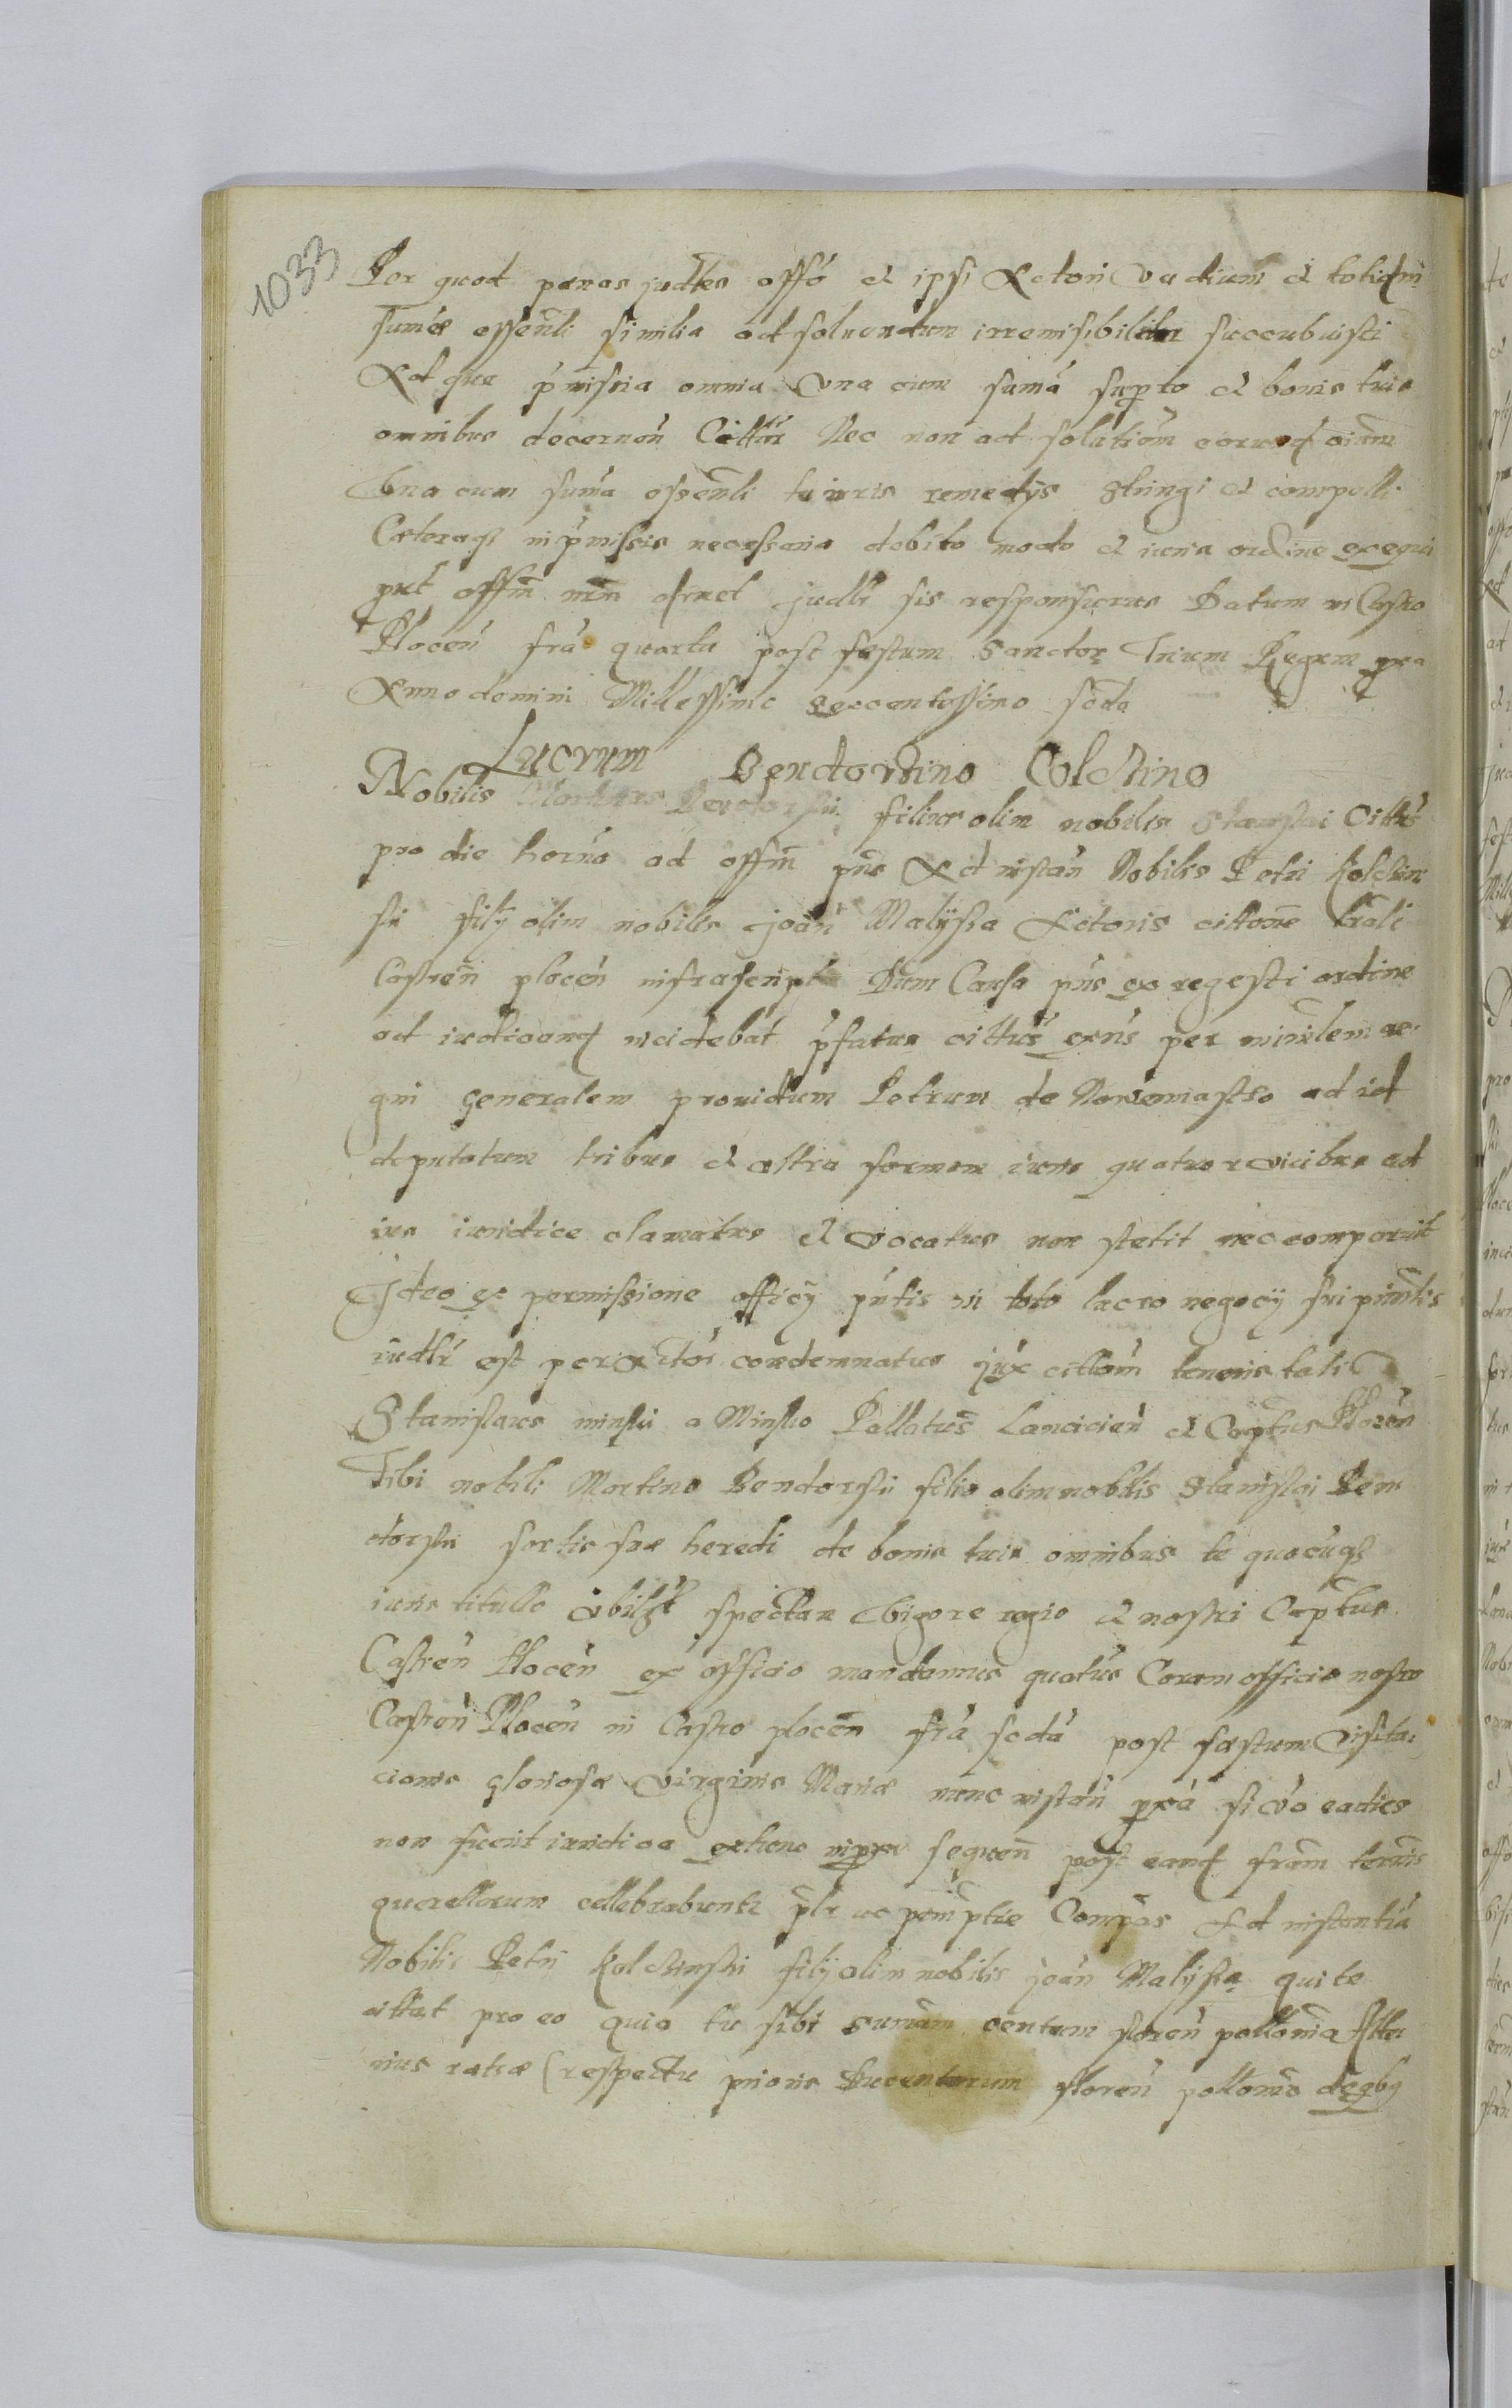 1033
Per quod pænas judles offő et ipsi Actori Vadium et totidm
sumæ essenli similia ad soluendum irremisibiliter succubuisti
Ad quæ pmissa omnia Vna cum sumá supto et bonis tuis
omnibus decernen Cittűr Nec non ad solatiőm eorund oium
Vna cum suma essenli tu iuris remedÿs stringi et compelli
Cæteraqȝ in pmissis necessaria debito modo et iuris ordine exequi
put offm nrm judlr sis responsurus Datum in Castro
Plocen fra quarta post festum Sanctor Trium Regum pxa
Anno domini Millessimo sexcentessimo scda
Lucrum Bendorstino Colctino
Nobilis Martinus Bendorski filius olim nobilis Stanislai Cittus
pro die horno ad offm pns Ad instan Nobilis Petri Kolctin
ski filÿ olim nobilis Joan Malÿska Actoris cittone trali
Castren plocen infrascripta Dum Causa pns ex regesti ordine
ad iudicand incidebat pfatus cittus exns per minrlem re
gni Generalem prouidum Petrum de Nouemiasto ad id
deputatum tribus et vltra formam iuris quatuor vicibus ad
ius iuridice clamatus et vocatus non stetit nec comparuit
Ideo ex permissione officÿ pntis in toto lucro negocÿ sui pinctis
iudlr est per Actor condemnatus jux cittom tenoris talis
Stanislaus minski a Minsko Pallatus Lancicien et Captus Plocen
Tibi nobili Martino Bendorski filio olim nobilis Stanislai Ben
dorski sortis suæ heredi de bonis tuis omnibus te quocuqȝ
iuris titullo vbilȝt spectan vigore regio et nostri Captus
Castren Plocen ex officio mandamus quatus Coram officio nostro
Castren Plocen in Castro plocen fra scda post fæstum Visita
cionis gloriosæ virginis Mariæ nunc instan pxa si vo ea dies
non fuerit iuridica extunc in pxis sequen post eand fram termis
querellarum cellebrabuntr plr ac pemptie Compas Ad instantia
Nobilis Petri Kolctinski filÿ olim nobilis joan Malÿska qui te
cittat pro eo quia tu sibi sumam centum floren pollonia Alter
nius ratæ (respectu prioris Ducentorum floren pollonis deqby